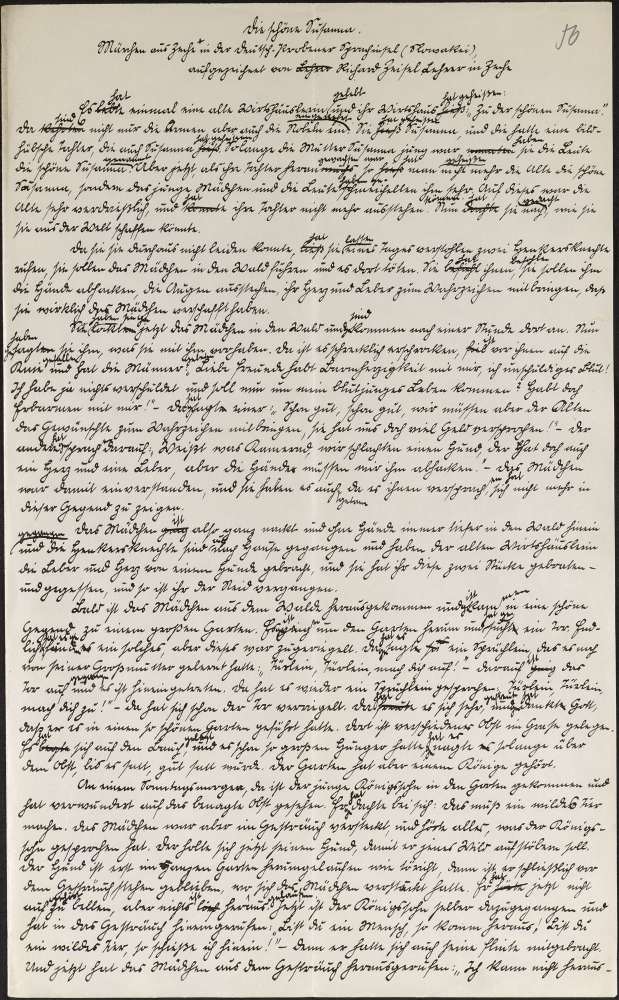 Die schöne Susanna.
56
Märchen aus Zeche in der Deutsch-Probener Sprachinsel (Slowakei),
aufgezeichnet von Lehrer Richard Zeisel Lehrer in Zeche
hat gehabt hat geheißen:
Es lebte einmal eine alte Wirtshäuslerin und ihr Wirtshaus hieß: "Zu der schönen Susanna."
sind eingekehrt hat geheißen
Da kehrten nicht nur die Armen, aber auch die Nobeln ein. Sie hieß Susanna, und die hatte eine bild-
hat geheißen haben
hübsche Tochter, die auch Susanna hieß. Solange die Mutter Susanna jung war nannten sie die Leute
genannt gewachsen war, hat geheißen
die schöne Susanna. Aber jetzt als ihr Tochter heranwuchs, so hieß man nicht mehr die Alte die schöne
Susanna, sondern das junge Mädchen und die Leute schmeichelten ihm sehr. Auf dieses war die
hat können hat gedacht
Alte sehr verdrießlich, und konnte ihre Tochter nicht mehr ausstehen. Nun dachte sie nach, wie sie
sie aus der Welt schaffen könnte.
hat lassen
Da sie sie durchaus nicht leiden konnte, ließ sie eines Tages verstohlen zwei Henkersknechte
hat befohlen
rufen, sie sollen das Mädchen in den Wald führen und es dort töten. Sie befahl ihnen, sie sollen ihm
die Hände abhacken, die Augen ausstechen, ihr Herz und Leber zum Wahrzeichen mitbringen, daß
sie wirklich das Mädchen verschafft haben.
haben sie sind
Sie lockten jetzt das Mädchen in den Wald und kommen nach einer Stunde dort an. Nun
haben
sagten sie ihm, was sie mit ihm vorhaben. Da ist es schrecklich erschrocken, fiel vor ihnen auf die
gefallen gebeten
Knie und hat die Männer: "Liebe Freunde habt Barmherzigkeit mit mir, ich unschuldiges Blut!
Ich habe ja nichts verschuldet und soll nun um mein blutjunges Leben kommen? Habt doch
hat
Erbarmen mit mir!" – Da sagte einer: "Schon gut, schon gut, wir müssen aber der Alten
das Gewünschte zum Wahrzeichen mitbringen, sie hat uns doch viel Geld versprochen!" – Der
hat
andere sprach darauf: "Weißt was Kamerad wir schlachten einen Hund, der hat doch auch
ein Herz und eine Leber, aber die Hände müssen wir ihm abhacken." – Das Mädchen
war damit einverstanden, und sie haben es auch getan, da es ihnen versprach, sich nicht mehr in
dieser Gegend zu zeigen.
ist
gegangen Das Mädchen ging also ganz nackt und ohne Hände immer tiefer in den Wald hinein
und die Henkersknechte sind nach Hause gegangen und haben der alten Wirtshäuslerin
die Leber und Herz von einem Hunde gebracht, und sie hat ihr diese zwei Stücke gebraten –
und gegessen, und so ist ihr der Neid vergangen.
Bald ist das Mädchen aus dem Walde herausgekommen und kam in eine schöne
Gegend, zu einem großen Garten. Es ging um den Garten herum und suchte ein Tor. End-
lich fand es ein solches, aber dieses war zugeriegelt. Da sagte es ein Sprüchlein, das es noch
von seiner Großmutter gelernt hatte: "Türlein, Türlein, mach dich auf!" – Darauf ging das
gegangen
Tor auf und es ist hineingetreten. Da hat es wieder ein Sprüchlein gesprochen: "Türlein, Türlein,
mach dich zu!" – Da hat sich schon das Tor verriegelt. Da freute es sich sehr und dankte Gott,
daß er es in einen so schönen Garten geführt hatte. Dort ist verschiedenes Obst im Grase gelegen.
hat gelegt hat es
Es legte sich auf den Bauch und es schon so großen Hunger hatte, nagte es solange über
dem Obst, bis es satt, gut satt wurde. Der Garten hat aber einem Könige gehört.
An einem Sonntagsmorgen, da ist der junge Königssohn in den Garten gekommen und
hat
hat verwundert auf das benagte Obst gesehen. Er dachte bei sich: Das muß ein wildes Tier
machen. Das Mädchen war aber im Gesträuch versteckt, und hörte alles, was der Königs-
sohn gesprochen hat. Der holte sich jetzt seinen Hund, damit er jenes Wild aufstöbern soll.
Der Hund ist erst im ganzen Garten herumgelaufen wie töricht, dann ist er schließlich vor
dem Gesträuch stehen geblieben, wo sich das Mädchen versteckt hatte. Er hörte jetzt nicht
gehört
auf zu bellen, aber nichts lief heraus. Jetzt ist der Königssohn selber dazugegangen und
hat in das Gesträuch hineingerufen: "Bist du ein Mensch, so komm heraus, bist du
ein wildes Tier, so schieße ich hinein!" – denn er hatte sich auch seine Flinte mitgebracht.
Und jetzt hat das Mädchen aus dem Gesträuch herausgerufen: "Ich kann nicht heraus-